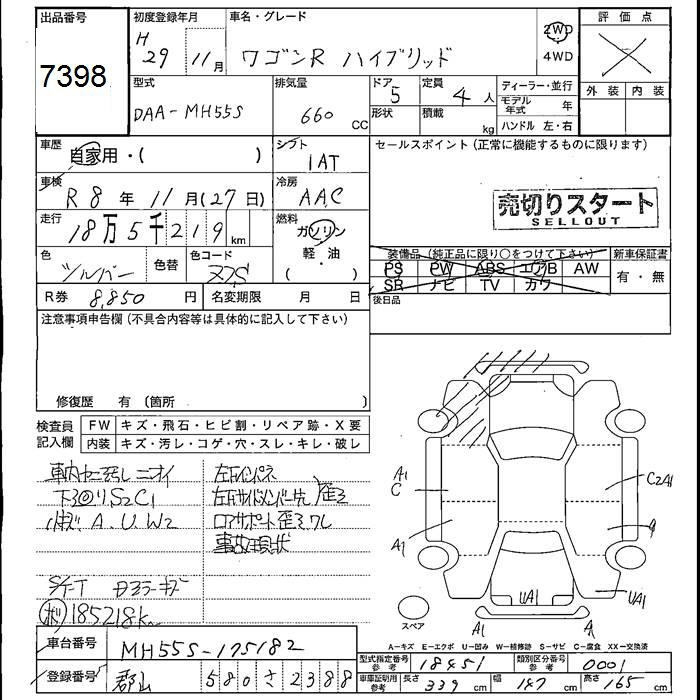 出品番号
7398
初度登録年月
H29 11月
車名・グレード
ワゴンR ハイブリッド
2WD
4WD
評価点
外装 内装
型式
DAA-MH55S
排気量
660 CC
ドア
5
形状
定員
4人
積載
kg
ディーラー・並行
モデル年式 年
ハンドル 左・右
車歴
自家用・( )
シフト
IAT
セールスポイント(正常に機能するものに限ります)
車検
R8年 11月(27日)
冷房
AAC
売切りスタート
SELLOUT
走行
18万5千219km
燃料
ガソリン
軽・油
( )
色
シルバー
色替
色コード
ZZS
装備品(純正品に限り○をつけて下さい)
PS PW ABS エアB AW
SR ナビ TV カワ
新車保証書
有・無
R券 8,850円
名変期限 月 日
後日品
注意事項申告欄(不具合内容等は具体的に記入して下さい)
修復歴 有(箇所 )
検査員
記入欄
FW キズ・飛石・ヒビ割・リペア跡・X要
内装 キズ・汚レ・コゲ・穴・スレ・キレ・破レ
ニオイ
左Fインパネ
S2C1
A.U.W2
ロアサポート歪ミ
事故現状
185218k
A1
C
A1
C2A1
UA1
UA1
A1
スペア
A=キズ E=エクボ U=凹み W=補修跡 S=サビ C=腐食 XX=交換済
車台番号
MH55S-175182
登録番号
郡山 580 さ 2388
型式指定番号
参考
18451
類別区分番号
参考
0001
車庫証明用
参考
長さ 339cm
幅 147cm
高さ 165cm